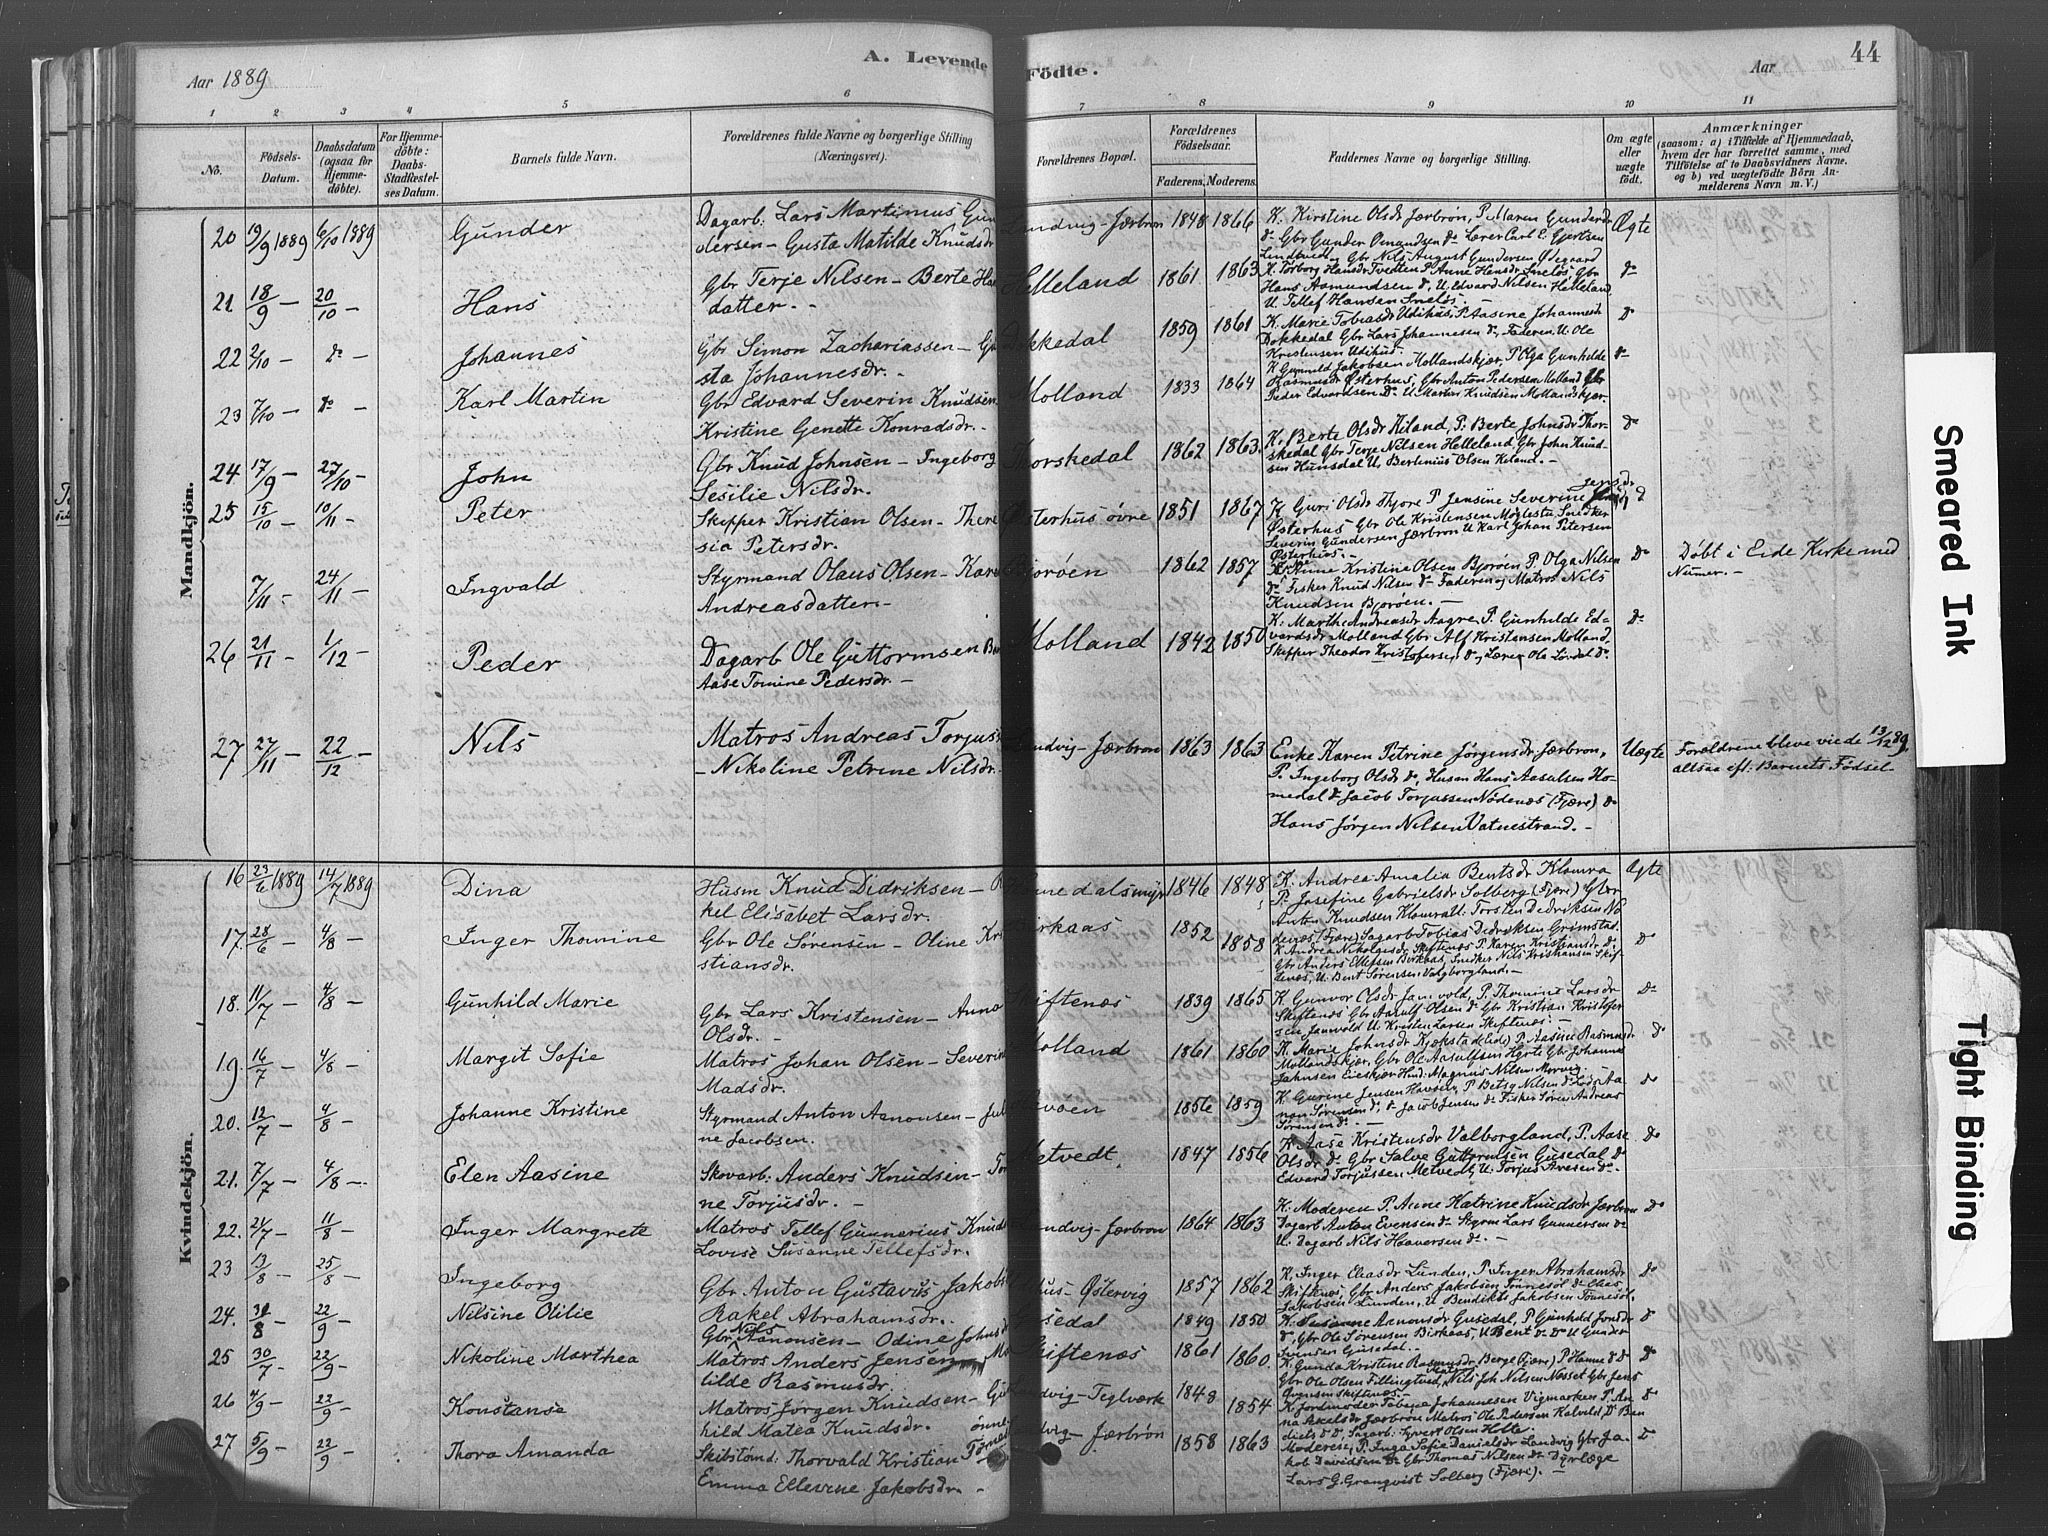 Aar 1889
A. Levende Födte.
Aar
44
1 2 3 4 5 6 7 8 9 10 11
No.
Födsels-Datum.
Daabsdatum (ogsaa for Hjemmedöbte).
For Hjemmedöbte: Daabs-Stadfæstelses Datum.
Barnets fulde Navn.
Forældrenes fulde Navne og borgerlige Stilling (Næringsvei).
Forældrenes Bopæl.
Forældrenes Födselsaar.
Faderens. Moderens.
Faddernes Navne og borgerlige Stilling.
Om ægte eller uægte födt.
Anmærkninger
(saasom: a) i Tilfælde af Hjemmedaab, hvem der har forrettet samme, med Tilföielse af to Daabsvidners Navne. og b) ved uægtefödte Börn Anmelderens Navn m. V.)
Mandkjön.
20 19/9 1889 6/10 1889 Gunder
Dagarb. Lars Martinius Gundersen - Gusta Matilde Knudsdr
Landvig-Jærbrøn 1848 1866
K. Kirstine Olsdr Jærbrøn, P. Maren Gundersdr
do Gbr Gunder Omundsen do Lærer Carl E. Gjertsen
Lindtveid og Gbr Nils August Gundersen Ødegaard
Ægte
21 18/9 - 20/10 - Hans
Gbr Terje Nilsen - Berte Hansdatter. -
Helleland 1861 1863
K. Torborg Hansdr Tvedten P. Anne Hansdr Sneløs Gbr
Hans Asmundsen do, U. Edvard Nilsen Helleland,
U. Tellef Hansen Sneløs. -
do
22 2/10 - do - Johannes
Gbr Simon Zachariassen - Gusta Johannesdr. -
Dokkedal 1859 1861
K. Marie Tobiasdr Udihus, P. Aasine Johannesdr
Dokkedal Gbr Lars Johannesen do, Faderen, U. Ole
Kristensen Udihus.
do
23 7/10 - do - Karl Martin
Gbr Edvard Severin Knudsen -
Kristine Genette Konradsdr. -
Molland 1833 1864
K Gunnild Jakobsen Mollandskjær, P Olga Gunhilde
Rasmusdr Østerhus, Gbr Anton Pedersen Molland Gbr
Peder Edvardsen do U Martin Knudsen Mollandskjær.
do
24 17/9 - 27/10 - John
Gbr Knud Johnsen - Ingeborg
Sesilie Nilsdr.
Thorskedal 1862 1863
K. Berte Olsdr Kiland, P. Berte Johnsdr Thorskedal
Gbr Terje Nilsen Helleland Gbr John Knudsen
Hunsdal U, Bertinius Olsen Kiland. -
do
25 15/10 - 10/11 - Peter
Skipper Kristian Olsen - Theresia Petersdr.
Østerhus øvre 1851 1867
K Guri Olsdr Thjore P. Jensine Severine Jensdr
Østerhus Gbr Ole Kristensen Moglestu Snedker
Severin Gundersen Jærbrøn U Karl Johan Petersen
Østerhus. -
do
7/11 - 24/11 - Ingvald
Styrmand Olaus Olsen - Karen
Andreasdatter. -
Bjorøen 1862 1857
K. Anne Kristine Olsen Bjorøen P. Olga Nilsen
do Fisker Knud Nilsen do Faderen og Matros Nils
Knudsen Bjorøen. -
do
Døbt i Eide Kirke med
Numer. -
26 21/11 - 1/12 - Peder
Dagarb Ole Guttormsen
Aase Tomine Pedersdr. -
Molland 1842 1850
K. Marthe Andreasdr Aagre, P. Gunhilde Edvardsdr
Molland Gbr Alf Kristensen Molland,
Skipper Theodor Kristofersen do, Lærer Ole Løvdal do
do
27 27/11 - 22/12 - Nils
Matros Andreas Torjus
- Nikoline Petrine Nilsdr.
Landvig-Jærbrøn 1863 1863
Enke Karen Petrine Jørgensdr Jærbrøn,
P. Ingeborg Olsdr do, Husm Hans Aasulsen Homedal
do Jacob Torjussen Nødenæs (Fjære) do
Hans Jørgen Nilsen Vatnestrand. -
Uægte
Forældrene bleve viede 13/12 89,
altsaa eft. Barnets Fødsel -
Kvindekjön.
16 23/6 1889 14/7 1889 Dina
Husm Knud Didriksen - Rakel Elisabet Larsdr.
Homme dalsmyr 1846 1848
K. Andrea Amalia Bentsdr Klomra
P. Josefine Gabrielsdr Solberg (Fjære) Gbr
Anton Knudsen Klomra U. Torsten Didriksen Nødenæs
(Fjære) Sagarb Tobias Didriksen Grimstad.
Ægte
17. 28/6 - 4/8 - Inger Thomine
Gbr Ole Sørensen - Oline Kristiansdr.
Birkaas 1852 1858
K Andrea Nikolaisdr, Skiftenæs P. Karen Kristiansdr do
Gbr Anders Ellefsen Birkaas, Snedker Nils Kristiansen Skiftenæs,
U. Bent Sørensen Valgborgland. -
do
18. 11/7 - 4/8 - Gunhild Marie
Gbr Lars Kristensen - Anna
Olsdr. -
Skiftenæs 1839 1865
K. Gunvor Olsdr Jamvold, P. Thomine Larsdr
Skiftenæs Gbr Aanulf Olsen do Gbr Kristian Kristofersen
Jamvold U. Kristen Larsen Skiftenæs. -
do
19. 16/7 - 4/8 - Margit Sofie
Matros Johan Olsen - Severine
Madsdr.
Molland 1861 1860
K. Marie Johnsdr Kjøkstad (Eide) P Aasine Rasmusdr
Mollandskjær, Gbr Ole Aasulfsen Hørte Gbr Johannes
Jahnsen Eieskjær Hmd: Magnus Nilsen Morvig. -
do
20. 12/7 - 4/8 - Johanne Kristine
Styrmand Anton Aanonsen - Juline Jacobsen.
1856 1859
K. Gurine Jensen Havøen, P Betsy Nilsen do Lods Aanon
Sørensen do, do Jacob Jensen do Fisker Søren Andreas
Sørensen do. -
do
21. 7/7 - 4/8 - Elen Aasine
Skovarb: Anders Knudsen - Torne Torjusdr. -
Metvedt 1847 1856
K. Aase Kristensdr Valborgland, P. Aase
Olsdr do Gbr Salve Guttormsen Gusedal do
Edvard Torjussen Metvedt, U. Torjus Avesen do. -
do
22. 24/7 - 11/8 - Inger Margrete
Matros Tellef Gunnarius Knuds
Lovise Susanne Tellefsdr.
Landvig-Jærbrøn 1864 1863
K. Moderen P. Anne Katrine Knudsdr Jærbrøn
Dagarb Anton Evensen do Styrm Lars Gunnersen do
U. Dagarb Nils Haaversen do. -
do
23 13/8 - 25/8 - Ingeborg
Gbr. Anton Gustavus Jakobsen
Rakel Abrahamsdr. -
hus-Østervig 1857 1862
K, Inger Eliasdr Lunden, P. Inger Abrahamsdr
Skiftenæs, Gbr Anders Jakobsen Tønnesøl do Elias
Jakobsen Lunden, U Bendikte Jakobsen Tønnesøl.
do
24. 30/8 - 22/9 - Nilsine Otilie
Gbr Nils Aanonsen - Odine Johnsdr
Gusedal 1849 1850
K. Susanne Aanonsdr Gusedal, P Gunhild Jonsdr
do, Gbr Ole Sørensen Birkaas, U Bent do do U Gunder
Svendsen Gusedal. -
do
25 30/7 - 22/9 - Nikoline Marthea
Matros Anders Jensen - Matilde Rasmusdr.
Skiftenæs 1861 1860
K. Gunda Kristine Rasmusdr Berge (Fjære) P Hanne do do
Gbr Ole Olsen Fillingtved, Matros Nils Joh Nilsen Næsset Gbr Jens
Evensen Skiftenæs. -
do
26 4/9 - 22/9 - Konstanse
Matros Jørgen Knudsen - Gunhild Matea Knudsdr.
Landvig-Teglværk 1848 1854
K Jordmoder Tabeta Johannesen Vigmarken P. Anna
Akelsdr Jærbrøn Matros Ole Pedersen Kalvild do Bendiels
do do. Sagarb: Syvert Olsen Helle.
do
27 5/9 - 22/9 - Thora Amanda
Skibstømd: Thorvald Kristian Tønnes
Emma Ellevine Jakobsdr. -
Landvig- Jærbrøn 1858 1863
Moderen, P. Inga Sofie Danielsdr Landvig Gbr Jakob
Davidsen do Gbr Thomas Nilsen do Dyrlæge
Lars G. Granqvist Solberg (Fjære). -
do
Smeared Ink
Tight Binding